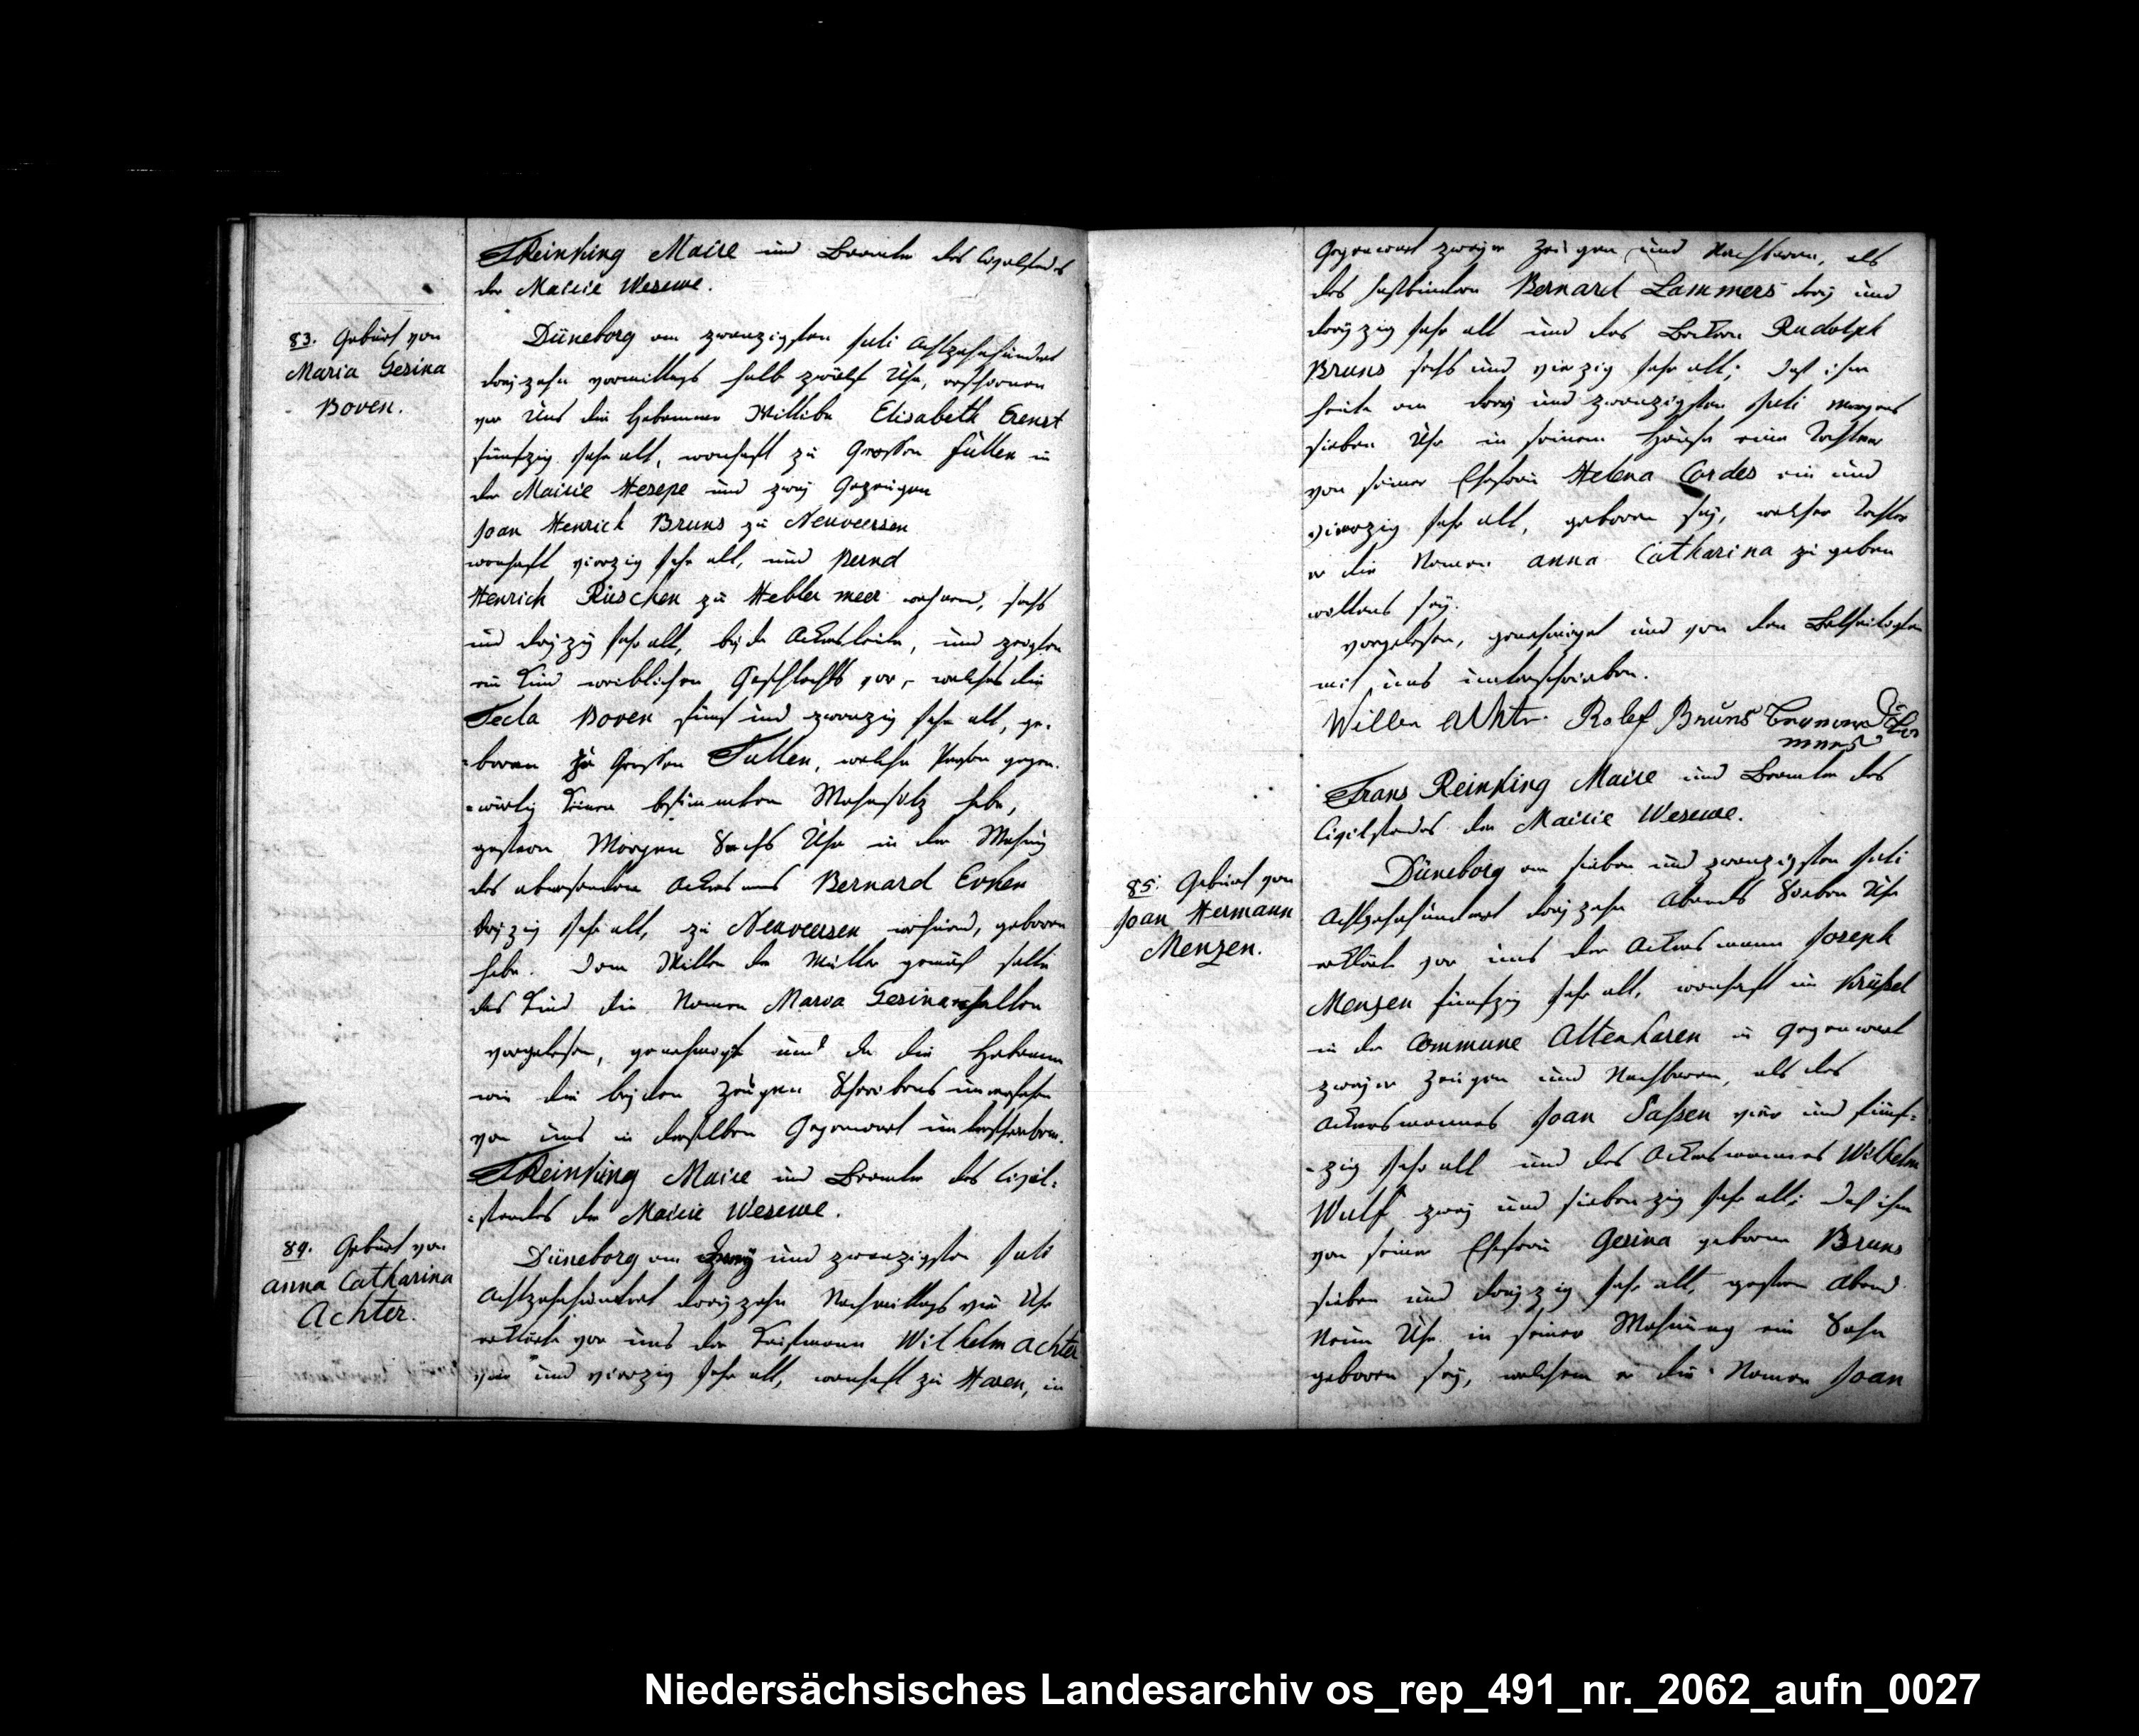 FReinking Maire und Beamter des Civilstandes
der Mairie Wesewe.
83. Geburt von
Maria Gesina
Boven.
Düneborg am zwanzigsten Juli Achtzehnhundert
dreyzehn vormittags halb zwölf Uhr, erschienen
vor Uns die Hebamme Elisabeth
fünfzig Jahr alt, wonhaft zu Grossen Füllen in
der Mairie Hesepe und zwey Gezeugen
Joan Henrich Bruns zu Neuversen
wonhaft vierzig Jahr alt, und Bernd
Henrich Rüschen zu Hebler meer wohnend, sechs
und dreyzig Jahr alt, beyde Ackersleute, und zeigten
ein Kind weiblichen Geschlechts vor, welches die
Tecla Boven fünf und zwanzig Jahr alt, ge-
boren zu Grossen Fullen, welche Person gegen-
wärtig keinen bestimmten Wohnsitz habe,
gestern Morgen Sechs Uhr in der Wohnung
des abwesenden Ackersmans Bernard Evken
dreyzig Jahr alt, zu Neuversen wohnend, geboren
habe. Dem Willen der Mutter gemäß solle
das Kind die Namen Maria Gesina erhalten
vorgelesen, genehmigt und da die Hebamme
wie die beyden Zeugen Schreibens unerfahren
von uns in derselben Gegenwart unterschrieben.
FReinking Maire und Beamter des Civil-
standes der Mairie Wesewe.
84. Geburt von
Anna Catharina
Achter.
Düneborg am drey und zwanzigsten Juli
Achtzehnhundert dreyzehn Nachmittags vier Uhr
erklärte vor uns der Kaufmann Wilhelm Achter
vier und vierzig Jahr alt, wonhaft zu Haren, in
Gegenwart zweyer Zeugen und Nachbaren, als
des Fassbinders Bernard Lammers drey und
dreyzig Jahr alt und des Beckers Rudolph
Bruns sechs und vierzig Jahr alt; daß ihm
heute am drey und zwanzigsten Juli Morgens
sieben Uhr in seinem Hause eine Tochter
von seiner Ehefrau Helena Cordes ein und
vierzig Jahr alt, geboren sey, welcher Tochter
er die Namen Anna Catharina zu geben
willens sey.
vorgelesen, genehmiget und von den Betheiligten
mit uns unterschrieben.
Willem Achter Rolef Bruns
Frans Reinking Maire und Beamter des
Civilstandes der Mairie Wesewe.
85. Geburt von
Joan Hermann
Menzen.
Düneborg am sieben und zwanzigsten Juli
Achtzehnhundert dreyzehn Abends Sieben Uhr
erklärte vor uns der Ackersmann Joseph
Menzen fünfzig Jahr alt, wonhaft im Krüßel
in der Commune Altenharen in Gegenwart
zweyer Zeugen und Nachbaren, als des
Ackersmannes Joan Saßen vier und fünf-
zig Jahr alt und des Ackersmannes Wilhelm
Wulf zwey und siebenzig Jahr alt; daß ihm
von seiner Ehefrau Gesina geboren Bruns
sieben und dreyzig Jahr alt, gestern Abend
Neun Uhr in seiner Wohnung ein Sohn
geboren sey, welchem er die Namen Joan
Niedersächsisches Landesarchiv os_rep_491_nr._2062_aufn_0027